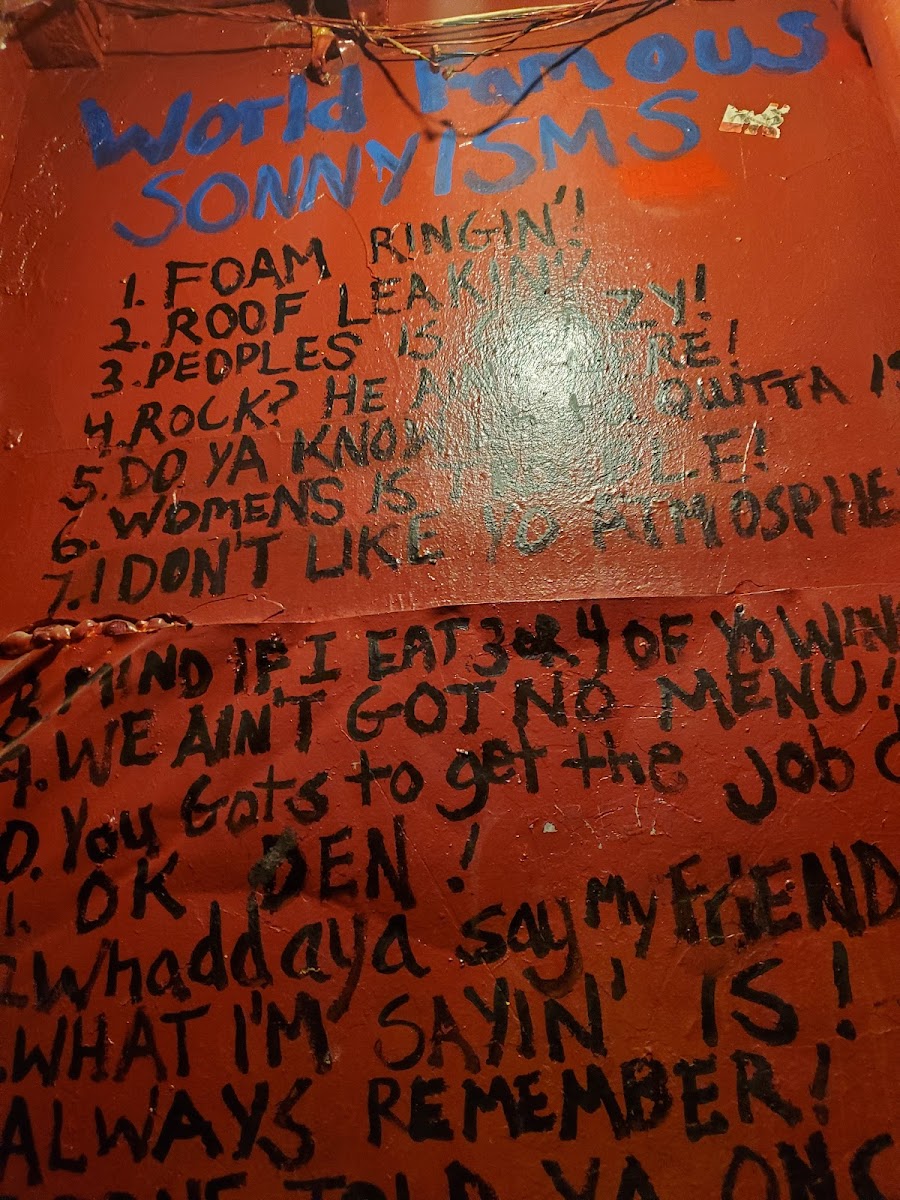 World Famous
SONNYISMS
1. FOAM RINGIN'!
2. ROOF LEAKIN'!
3. PEOPLES IS CRAZY!
4. ROCK? HE AIN'T HERE!
5. DO YA KNOW QUITTA
6. WOMENS IS TROUBLE!
7. I DON'T LIKE YO ATMOSPHE
8. MIND IF I EAT 3 OR 4 OF YO WIN
9. WE AIN'T GOT NO MENU!
0. You Gots to get the job d
1. OK DEN!
2 Whaddaya say My FriEND
. WHAT I'M SAYIN' IS!
ALWAYS REMEMBER!
TOLD YA ONC